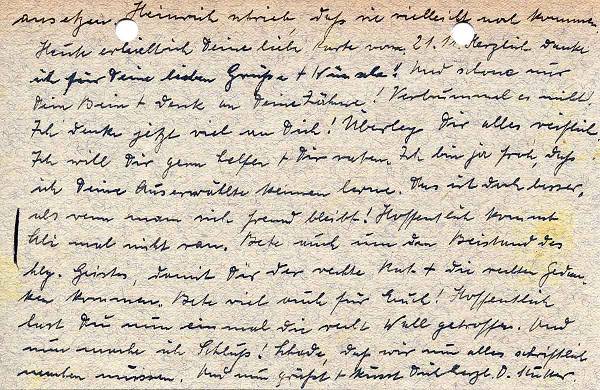 aussetzen. Heinrich schrieb, daß sie vielleicht noch kommen.
Heute erhielt ich Deine liebe Karte vom 21.11. Herzlich danke
ich für Deine lieben Grüße + Wünsche! Und schone nur
Dein Bein + denk an Deine Zähne! Verbummel es nicht!
Ich denke jetzt viel an Dich! Überleg Dir alles reiflich.
Ich will Dir gern helfen + Dir raten. Ich bin ja froh, daß
ich Deine Auserwählte kennen lerne. Das ist doch besser,
als wenn man sich fremd bleibt! Hoffentlich kommt
mal nicht ran. Bete auch um den Beistand des
hlg. Geistes, damit Dir der rechte Rat + die rechten Gedan-
ken kommen. Bete viel auch für Euch! Hoffentlich
hast Du nun einmal die recht Wahl getroffen. Und
nun mache ich Schluß! Schade, daß wir nun alles schriftlich
machen müssen. Und nun grüßt + küsst Dich herzl. D. Mutter.